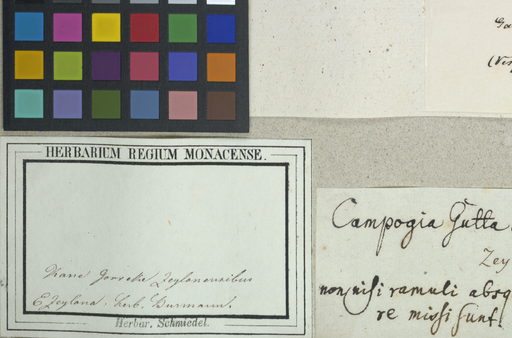 HERBARIUM REGIUM MONACENSE.
Zeylonensibus
E Zeylona. herb. Burmann.
Herbar. Schmiedel.
Campogia Gutta
Zey
non nisi ramuli absq
re missi sunt.